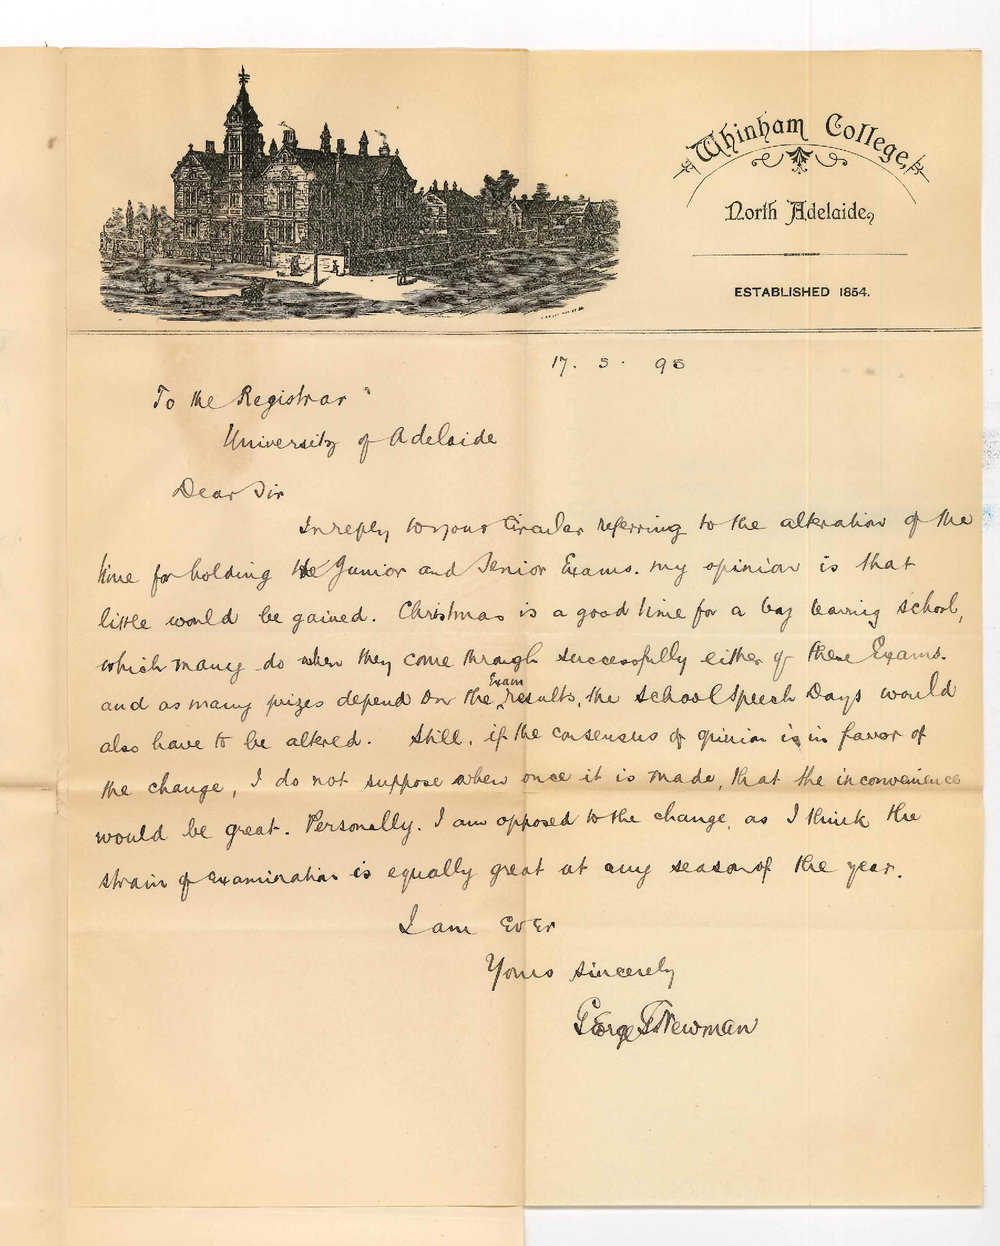 Whinham College,
North Adelaide,
ESTABLISHED 1854.
17. 3. 95
To the Registrar
University of Adelaide
Dear Sir
In reply to your Circular referring to the alteration of the
time for holding the Junior and Senior Exams. my opinion is that
little would be gained. Christmas is a good time for a boy leaving school,
which many do when they come through successfully either of these Exams.
and as many prizes depend on the Exam results, the School Speech Days would
also have to be altered. Still, if the consensus of opinion is in favor of
the change, I do not suppose when once it is made, that the inconvenience
would be great. Personally. I am opposed to the change, as I think the
strain of examination is equally great at any season of the year.
I am ever
Yours sincerely
George G Newman